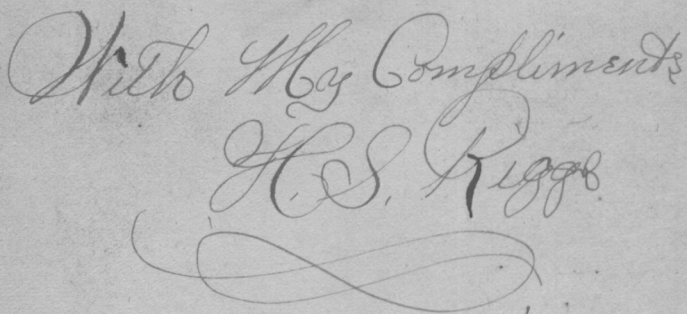 With My Compliments
H. S. Riggs